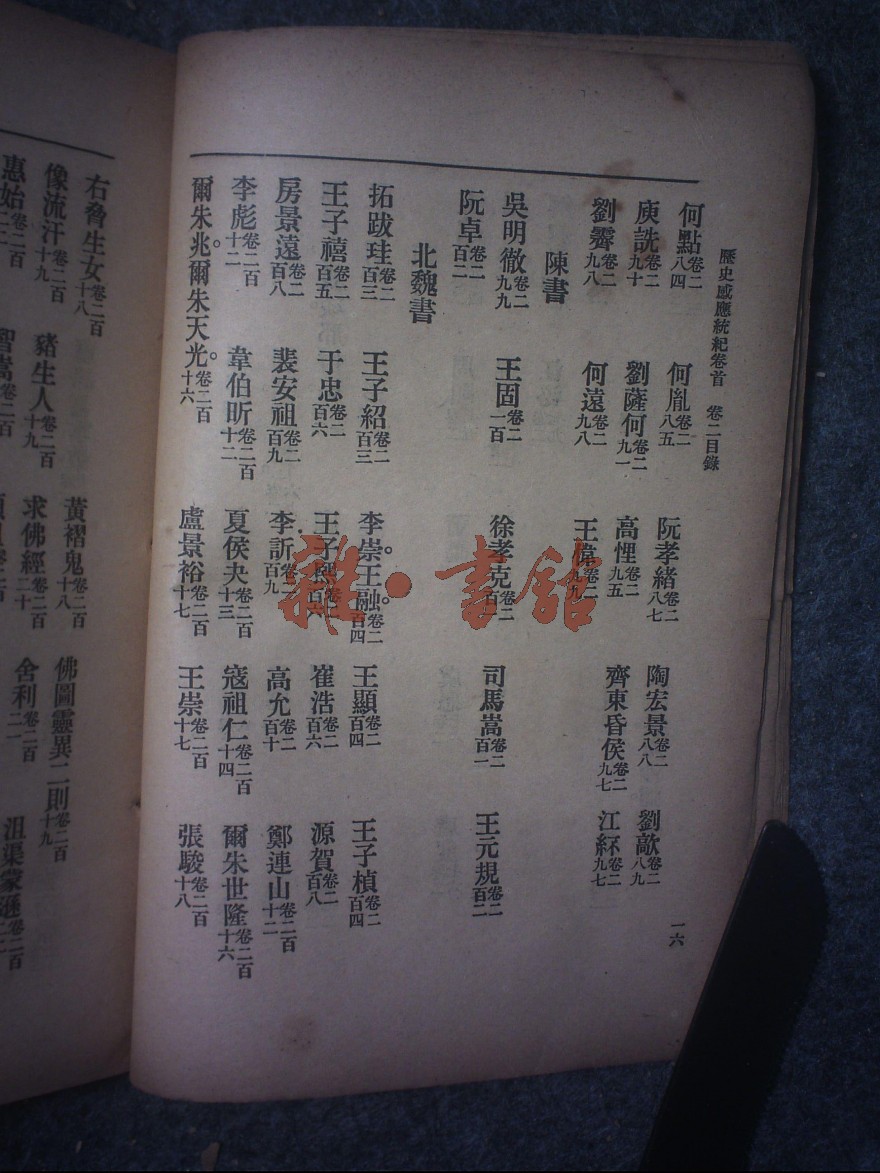 歷史感應統紀卷首 卷二目錄 一六
何點卷二八四 何胤卷二八五 阮孝緒卷二八七 陶宏景卷二八八 劉歊卷二八九
庾詵卷二九十 劉薩何卷二九一 高悝卷二九五 齊東昏侯卷二九七 江紑卷二九七
劉霽卷二九八 何遠卷二九八 王偉卷二九九
陳書
吳明徹卷二九九 王固卷二一百 徐孝克卷二百一 司馬暠卷二百一 王元規卷二百二
阮卓卷二百二
北魏書
拓跋珪卷二百三 王子紹卷二百三 李崇。王融。卷二百四 王顯卷二百四 王子楨卷二百四
王子禧卷二百五 于忠卷二百六 王子熙卷二百六 崔浩卷二百六 源賀卷二百八
房景遠卷二百八 裴安祖卷二百九 李訢卷二百九 高允卷二百十 鄭連山卷二百十二
李彪卷二百十二 韋伯昕卷二百十二 夏侯夬卷二百十三 寇祖仁卷二百十四 爾朱世隆卷二百十六
爾朱兆。爾朱天光。卷二百十六 盧景裕卷二百十七 王崇卷二百十七 張駿卷二百十八
右脅生女卷二百十八 黃褶鬼卷二百十八 佛圖靈異二則卷二百十九
像流汗卷二百十九 豬生人卷二百十九 求佛經卷二百二十 舍利卷二百二一 沮渠蒙遜卷二百
惠始卷二百 智嵩卷二百
雜·書館